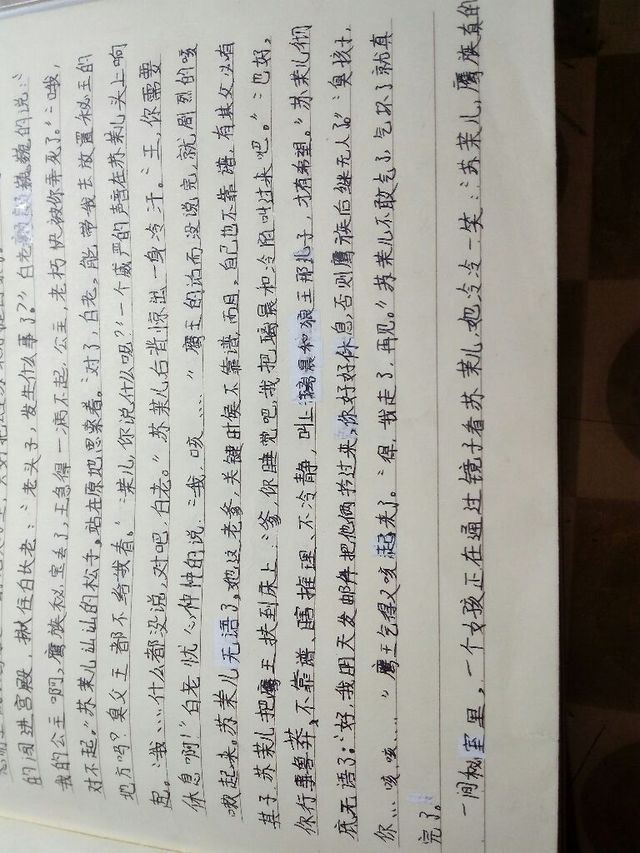 的闯进宫殿,揪住白长老:“老头子,发生什么事了?”白老颤颤巍巍的说:“
我的公主啊,鹰族秘宝丢了,王急得一病不起,公主,老朽快被你弄死了。”“哦,
对不起。”苏茉儿讪讪的松手。站在原地思索着。“对了,白老。能带我去放置秘宝的
地方吗?臭父王都不给我看。”“茉儿,你说什么呢?”一个威严的声音在苏茉儿头上响
起。“我……什么都没说,对吧,白老。”苏茉儿后背惊出一身冷汗。“王,你需要
休息啊!”白老忧心忡忡的说,“我,咳……”鹰王的话而没说完,就剧烈的咳
嗽起来。苏茉儿无语了,她这老爹,关键时候不靠谱,而且,自己也不靠谱,有其父必有
其子。苏茉儿把鹰王扶到床上:“爹,你睡觉吧,我把璃晨和冷陌叫过来吧。”“也好,
你行事鲁莽,不靠谱、瞎推理、不冷静,叫上璃晨和狼王那儿子,才有希望。”苏茉儿彻
底无语了:“好,我用天发邮件把他俩节过来,你好好休息,否则鹰族后继无人了。”“臭孩子,
你…咳咳……”鹰王气得又咳起来了。“得,我走了,再见。”苏茉儿不敢气了,气坏了就真
完了。
一间秘室里,一个女孩正在通过镜子看苏茉儿,她冷冷一笑:“苏茉儿,鹰族真的